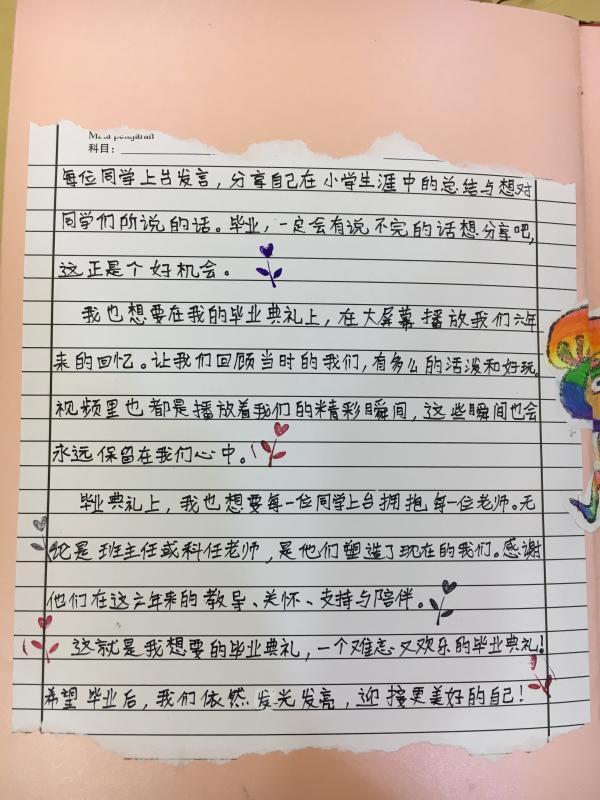 科目：
每位同学上台发言，分享自己在小学生涯中的总结与想对
同学们所说的话。毕业，一定会有说不完的话想分享吧，
这正是个好机会。
我也想要在我的毕业典礼上，在大屏幕播放我们六年
来的回忆。让我们回顾当时的我们，有多么的活泼和好玩。
视频里也都是播放着我们的精彩瞬间，这些瞬间也会
永远保留在我们心中。
毕业典礼上，我也想要每一位同学上台拥抱每一位老师。无
论是班主任或科任老师，是他们塑造了现在的我们。感谢
他们在这六年来的教导、关怀、支持与陪伴。
这就是我想要的毕业典礼，一个难忘又欢乐的毕业典礼！
希望毕业后，我们依然发光发亮，迎接更美好的自己！